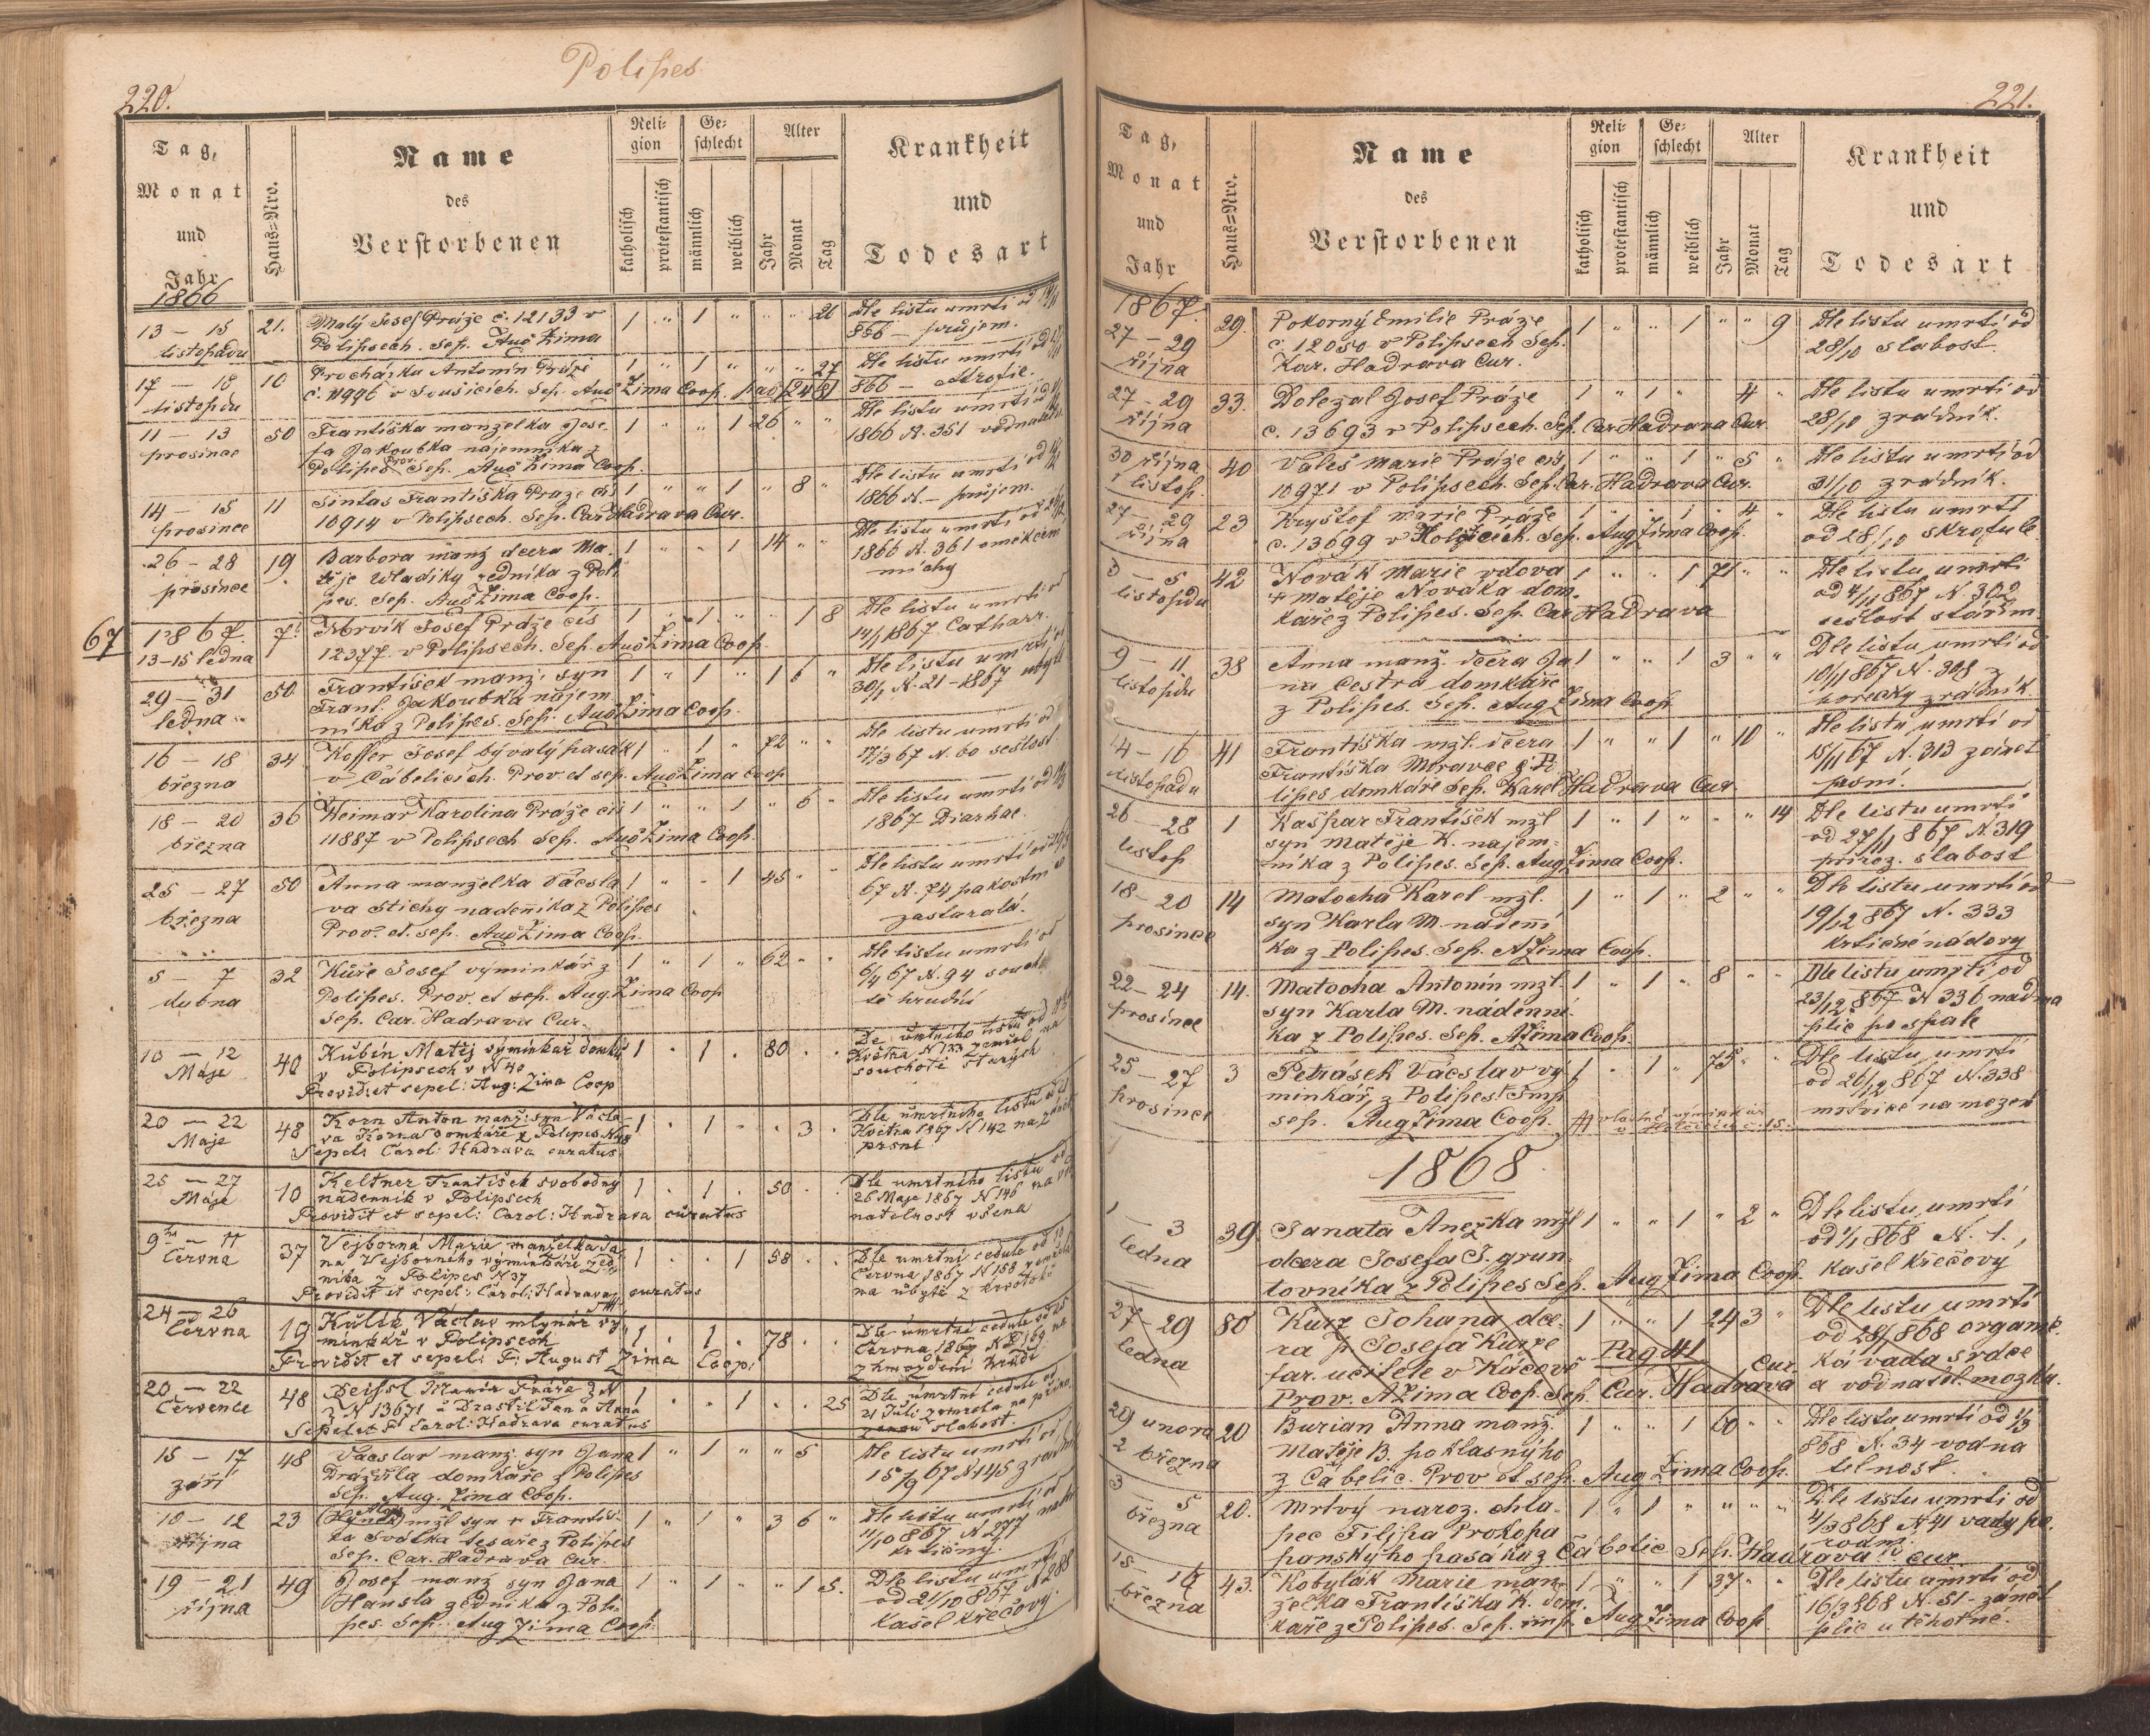 Polipes
220.
Tag, Monat und Jahr
Haus=Nro.
Name des Verstorbenen
Religion
katholisch
protestantisch
Geschlecht
männlich
weiblich
Alter
Jahr
Monat
Tag
Krankheit und Todesart
1866
13 – 15 listopadu 21. Malý Josef Práze č. 12133 v 1 " 1 " " " 21 Dle listu umrtí od
Polipsech. Sep. Aug Zima
866 – průjem.
17 – 18 listopdu 10 Procházka Antonín Práze 1 " 1 " " " 27 Dle listu umrtí
č. 11996 v Soušicích. Sep. Aug Zima Coop.
866 – Atrofie.
11 – 13 prosince 50 Františka manželka Jose- 1 " " 1 26 " " Dle listu umrtí
fa Jakoubka nájemníka z
1866 N. 351
Polipes Prov. Sep. Aug Zima Coop.
14 – 15 prosince 11 Františka Praze čís 1 " " 1 " 8 " Dle listu umrtí od
10914 v Polipsech. Sep. Car Hadrava Cur.
1866 N. – průjem.
26 – 28 prosince 19 Barbora manž dcera Ma- 1 " " 1 14 " " Dle listu umrtí od
těje Wladiky zedníka z Poli
1866 N. 361
pes. Sep. Aug Zima Coop.
míchy
67
1867.
13–15 ledna 7 Mrvík Josef Práze čís 1 " 1 " " 1 8 Dle listu umrtí
12377. v Polipsech. Sep. Aug Zima Coop.
14/1 1867 Catharr.
29 – 31 ledna 50 František manž. syn 1 " 1 " 1 6 " Dle listu umrtí
Frant. Jakoubka nájem
30/1 N. 21 – 1867
níka z Polipes. Sep. Aug Zima Coop.
16 – 18 března 34 Koffer Josef bývalý pasák 1 " 1 " 72 " " Dle listu umrtí od
v Čábelicích. Prov et sep. Aug Zima Coop
17/3 67 N. 60 sešlost
18 – 20 března 36 Weimar Karolina Práze čís 1 " " 1 " 6 " Dle listu umrtí od
11887 v Polipsech Sep. Aug Zima Coop.
1867 Diarhae.
25 – 27 března 50 Anna manželka Vácsla 1 " " 1 45 " " Dle listu umrtí od
va Stichy nadeníka z Polipes
67 N. 74 pakostni
Prov. et. sep. Aug Zima Coop.
zastaralá.
5 – 7 dubna 32 Kuře Josef výminkář z 1 " 1 " 62 " " Dle listu umrtí od
Polipes. Prov. et sep. Aug. Zima Coop
6/4 67 N. 94
Sep. Car. Hadrava Cur.
10 – 12 Máje 40 Kubín Matěj výminkář 1 " 1 " 80
v Polipsech v N 40
Května N 133 zemřel na
Providit et sepel: Aug: Zima Coop
souchotě starých
20 – 22 Máje 48 Korn Anton manž: syn Václa- 1 1 " 3 Dle úmrtního listu
va Korna domkáře z Polipes N 48
Května 1867 N 142
Sepel: Carol: Hadrava curatus
prsní
25 – 27 Máje 10 Keltner František svobodný 1 1 50 Dle umrtního listu
nádenník v Polipsech
26 Maje 1867 N 146 na
Providit et sepel: Carol: Hadrava curatus
9 – 11 Června 37 Vejborná Marie manželka Ja- 1 1 58 Dle umrtní cedule od 10
na Vejborného výminkáře zed-
Června 1867 N 158
níka z Polipes N 37
na úbytě z krvotoků
Providit et sepel: Carol: Hadrava curatus
24 – 26 Června 19 Kulík Václav mlynář vý- 1 1 78 Dle úmrtní cedule
minkář v Polipsech
Června 1867
Providit et sepel: P: August Zima Coop:
20 – 22 Července 48 Práze 1 1 25 Dle umrtní cedule
N 13671
21 Juli zemřela na
Sepel: Carol: Hadrava curatus
slabost.
15 – 17 září 48 Vácslav manž. syn Jana 1 " 1 " " 5 Dle listu umrtí od
Drázdila domkáře z Polipes
15/9 67 N 145
Sep. Aug. Zima Coop.
10 – 12 října 23 (Hynek) mžl syn Františ- 1 " 1 " 3 6 " Dle listu umrtí od
ka Svátka tesaře z Polipes
11/10 867 N 277
Sep. Car. Hadrava Cur.
krtičný.
19 – 21 října 49 Josef manž syn Jana 1 " 1 " " 1 5. Dle listu umrtí
Hansla zedníka z Poli
od 21/10 867 N 288
pes. Sep. Aug Zima Coop.
Kašel křečový
221.
Tag, Monat und Jahr
Haus=Nro.
Name des Verstorbenen
Religion
katholisch
protestantisch
Geschlecht
männlich
weiblich
Alter
Jahr
Monat
Tag
Krankheit und Todesart
1867.
27 – 29 října 29. Pokorný Emilie Práze 1 " " 1 " " 9 Dle listu umrtí od
č. 12050 v Polipsech Sep.
28/10 slabost.
Kar. Hadrava Cur.
27 – 29 října 33. Dolezal Josef Práze 1 " 1 " " 4 " Dle listu umrtí od
č. 13693 v Polipsech. Sep. Car Hadrava Cur.
28/10 zrádník.
30 října 1 listop. 40 Valeš Marie Práze čís 1 " " 1 " 5 " Dle listu umrtí od
10971 v Polipsech Sep. Car. Hadrava Cur.
31/10 zrádník.
27 – 29 října 23 Kryštof Marie Práze 1 " " 1 " 4 " Dle listu umrtí
č. 13699 v Sep. Aug Zima Coop.
od 28/10 skrofule
3 – 5 listopdu 42 Novák Marie vdova 1 " " 1 71 " " Dle listu umrtí
+ Matěje Nováka dom.
od 4/11 867 N. 302
káře z Polipes. Sep. Car Hadrava
sešlost stářím
9 – 11 listopdu 38 Anna manž. dcera Ja 1 " " 1 3 " " Dle listu umrtí od
na Cestra domkáře
10/11 867 N. 308
z Polipes. Sep. Aug Zima Coop.
zrádník.
14 – 16 listopadu 41 Františka mžl. dcera 1 " " 1 " 10 " Dle listu umrtí od
Františka Moravec z Po
15/11 67 N. 313 zánět
lipes domkáře Sep. Karel Hadrava Cur.
prsní.
26 – 28 listop 1 Kašpar František mžl 1 " 1 " " " 14 Dle listu umrtí
syn Matěje K. najem-
od 27/11 867 N. 319
níka z Polipes. Sep. Aug Zima Coop.
přiroz. slabost
18 – 20 prosince 14 Matocha Karel mžl. 1 " 1 " 2 " " Dle listu umrtí od
syn Karla M. nádení
19/12 867 N. 333
ka z Polipes. Sep. A Zima Coop.
krtičné nádory
22 – 24 prosince 14. Matocha Antonín mžl. 1 " 1 " 8 " " Dle listu umrtí od
syn Karla M. nádenní-
23/12 867 N 336 nadma
ka z Polipes. Sep. A Zima Coop.
plic po spale
25 – 27 prosince 3 Petrásek Vácslav vý- 1 " 1 " 75 " " Dle listu umrtí
minkář, z Polipes
od 26/12 867 N. 338
sep. Aug Zima Coop.
mrtvice na mozek
1868.
1 – 3 ledna 39. Sanata Anežka mžl 1 " " 1 " 2 " Dle listu umrtí
dcera Josefa S. grun-
od 1/1 868 N. 1.
tovníka z Polipes Sep. Aug Zima Coop.
Kašel křečový
27 – 29 ledna 80 Kurz Johana dce- 1 " " 1 24 3 " Dle listu umrtí
ra p. Josefa Kurze
Pag 41
od 28/1 868 organic-
far. učitele v Kácově
ká vada srdce
Prov. A Zima Coop. Sep. Car. Hadrava Cur.
a vodnatel. mozku.
29 unora 2 března 20 Burian Anna manž. 1 " " 1 60 " " Dle listu umrtí od 1/3
Matěje B. poklasného
868 N. 34 vodna
z Čábelic. Prov et sep. Aug Zima Coop.
telnost.
3 – 5 března 20. Mrtvý naroz. chla- 1 " 1 " " " " Dle listu umrtí od
pec Filipa Prokopa
4/3 868 N 41 vady
panského pasáka z Čábelic Sep. Hadrava cur.
března 43. Kobylák Marie man- 1 " " 1 37 " " Dle listu umrtí od
želka Františka K. dom.
16/3 868 N. 51 - zánět
káře z Polipes. Sep. Aug Zima Coop.
plic u těhotné.